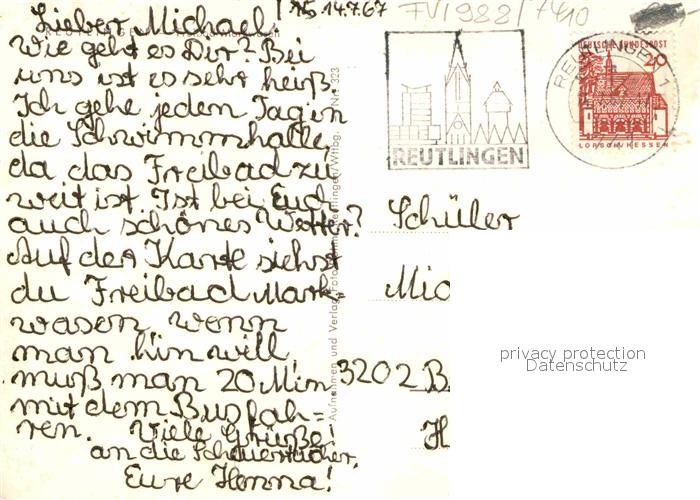 14.7.67
FV/988/7410
Lieber Michael,
wie geht es Dir? Bei
uns ist es sehr heiß.
Ich gehe jeden Tag in
die Schwimmhalle,
da das Freibad zu
weit ist. Ist bei Euch
auch schönes Wetter?
Auf der Karte siehst
du Freibad Mark=
wasen wenn
man hin will,
muß man 20 Min
mit dem Bus fah=
ren. Viele Grüße!
an die
Eure Henna!
REUTLINGEN
REUTLINGEN 1
DEUTSCHE BUNDESPOST
20
LORSCH/HESSEN
Schüler
Mic
3202 B
H
Aufnahmen und Verlag
privacy protection
Datenschutz